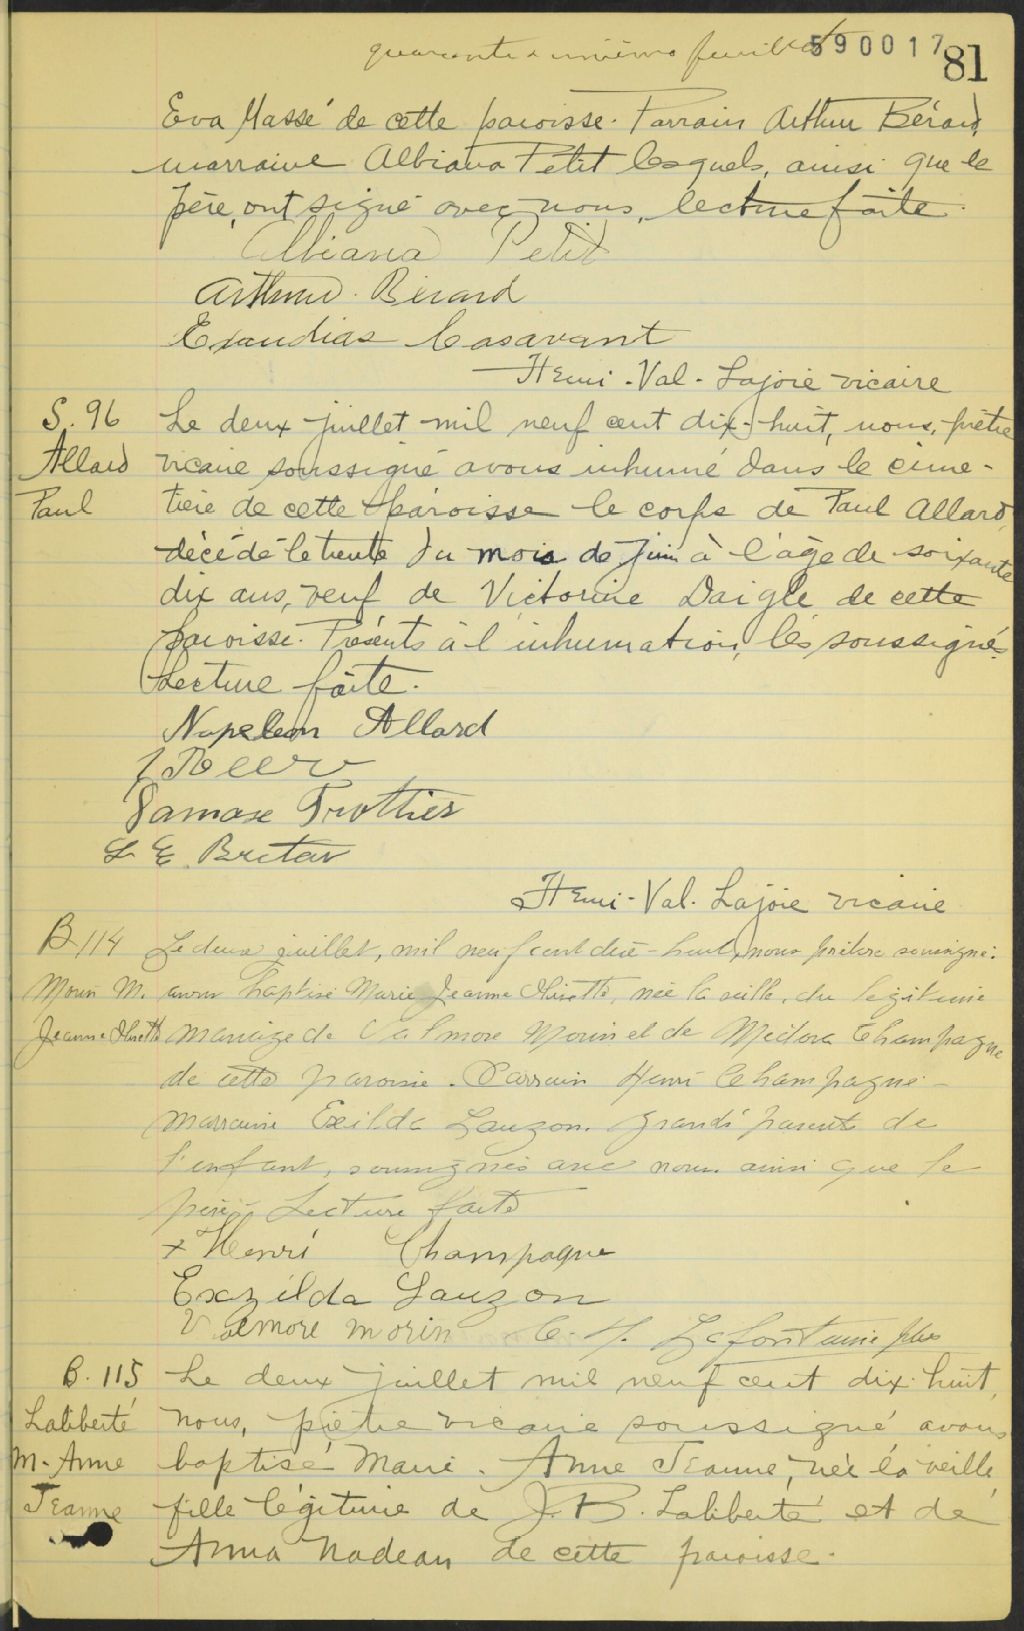 quarante-unième feuillet 590017
81
Eva Massé de cette paroisse. Parrain Arthur Bérard,
marraine Albiana Petit lesquels, ainsi que le
père, ont signé avec nous, lecture faite.
Albiana Petit
Arthur Bérard
Exaudias Casavant
Henri-Val-Lajoie vicaire
S. 96
Allard
Paul
Le deux juillet mil neuf cent dix-huit, nous, prêtre
vicaire soussigné avons inhumé dans le cime-
tière de cette paroisse le corps de Paul Allard,
décédé le trente du mois de juin à l'age de soixante
dix ans, veuf de Victorine Daigle de cette
paroisse. Présents à l'inhumation, les soussignés.
Lecture faite.
Napoleon Allard
Damase Trottier
L E
Henri-Val-Lajoie vicaire
B 114
Morin M.
Jeanne
Le deux juillet, mil neuf cent dix-huit, nous prêtre soussigné
avons baptisé Marie Jeanne, née la veille, du légitime
mariage de Valmore Morin et de Médora Champagne
de cette paroisse. Parrain Henri Champagne
marraine Exilda Lauzon. grands parents de
l'enfant, soussignés avec nous ainsi que le
père. Lecture faite
+ Henri Champagne
Exzilda Lauzon
Valmore Morin C. H. Lafontaine ptre
B. 115
Laliberté
M-Anne
Jeanne
Le deux juillet mil neuf cent dix-huit,
nous, prêtre vicaire soussigné avons
baptisé Marie-Anne Jeanne, née la veille,
fille légitime de J. B. Laliberté et de
Anna Nadeau de cette paroisse.